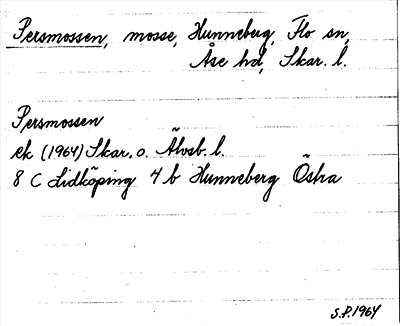 Persmossen, mosse, Hunneberg, Flo sn,
Åse hd, Skar. l.
Persmossen
ek (1964) Skar. o. Älvsb. l.
8 C Lidköping 4 b Hunneberg Östra
S.P. 1964